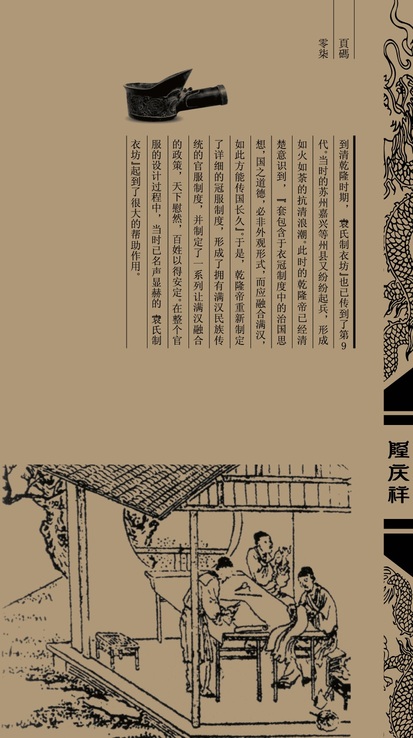 頁碼
零柒
到清乾隆时期，『袁氏制衣坊』也已传到了第9
代。当时的苏州嘉兴等州县又纷纷起兵，形成
如火如荼的抗清浪潮。此时的乾隆帝已经清
楚意识到，『一套包含于衣冠制度中的治国思
想，国之道德，必非外观形式，而应融合满汉，
如此方能传国长久』。于是，乾隆帝重新制定
了详细的冠服制度，形成了拥有满汉民族传
统的官服制度，并制定了一系列让满汉融合
的政策，天下慰然，百姓以得安定。在整个官
服的设计过程中，当时已名声显赫的『袁氏制
衣坊』起到了很大的帮助作用。
隆庆祥